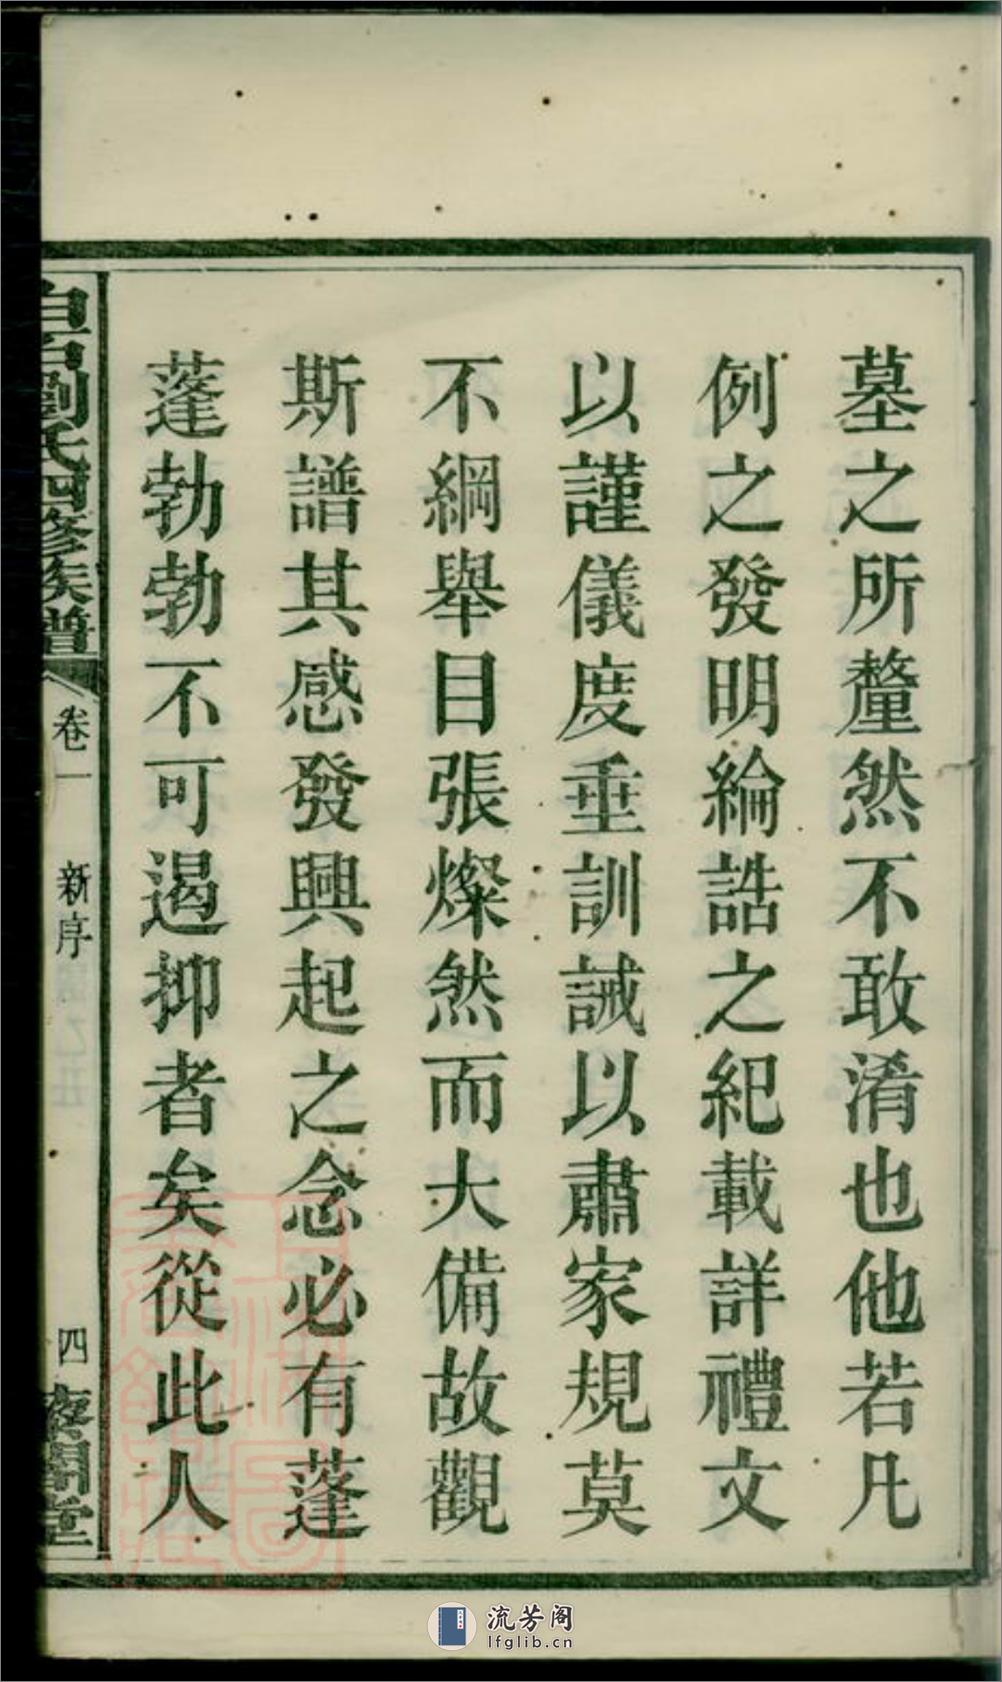 墓之所釐然不敢淆也他若凡
例之發明綸誥之紀載詳禮文
以謹儀度垂訓誡以肅家規莫
不綱舉目張燦然而大備故觀
斯譜其感發興起之念必有蓬
蓬勃勃不可遏抑者矣從此人
白石劉氏四修族譜
卷一
新序
四
藜閣堂
流芳阁
lfglib.cn